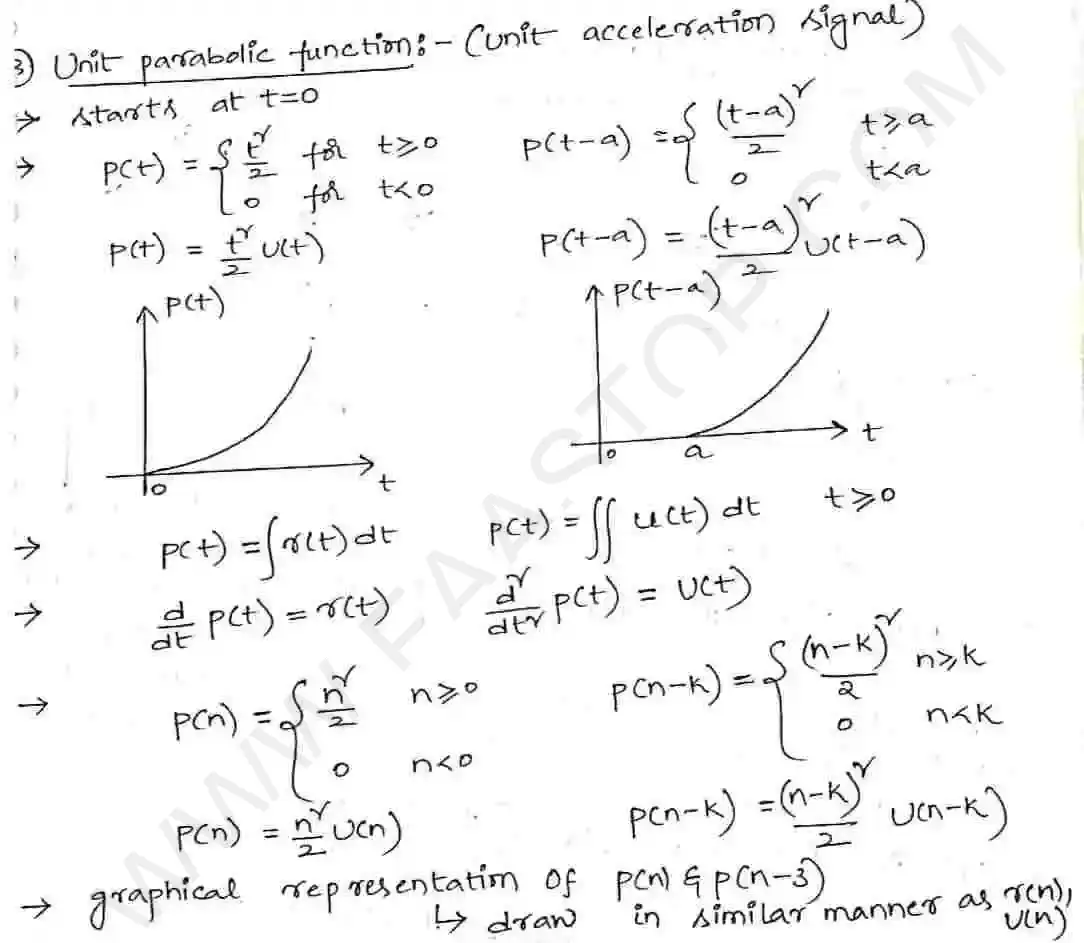 3) Unit parabolic function:- (unit acceleration signal)
→ starts at t=0
→ P(t) = { t²/2 for t≥0    P(t-a) = { (t-a)²/2 t≥a
0 for t<0    0 t<a
P(t) = t²/2 U(t)    P(t-a) = (t-a)²/2 U(t-a)
P(t)    P(t-a)
0 t    0 a t
→ P(t) = ∫r(t) dt    P(t) = ∬ u(t) dt    t≥0
→ d/dt P(t) = r(t)    d²/dt² P(t) = U(t)
→ P(n) = { n²/2 n≥0    P(n-k) = { (n-k)²/2 n≥k
0 n<0    0 n<k
P(n) = n²/2 U(n)    P(n-k) = (n-k)²/2 U(n-k)
→ graphical representation of P(n) & P(n-3)
↳ draw in similar manner as r(n),
U(n)
WWW.FAASTOP.COM